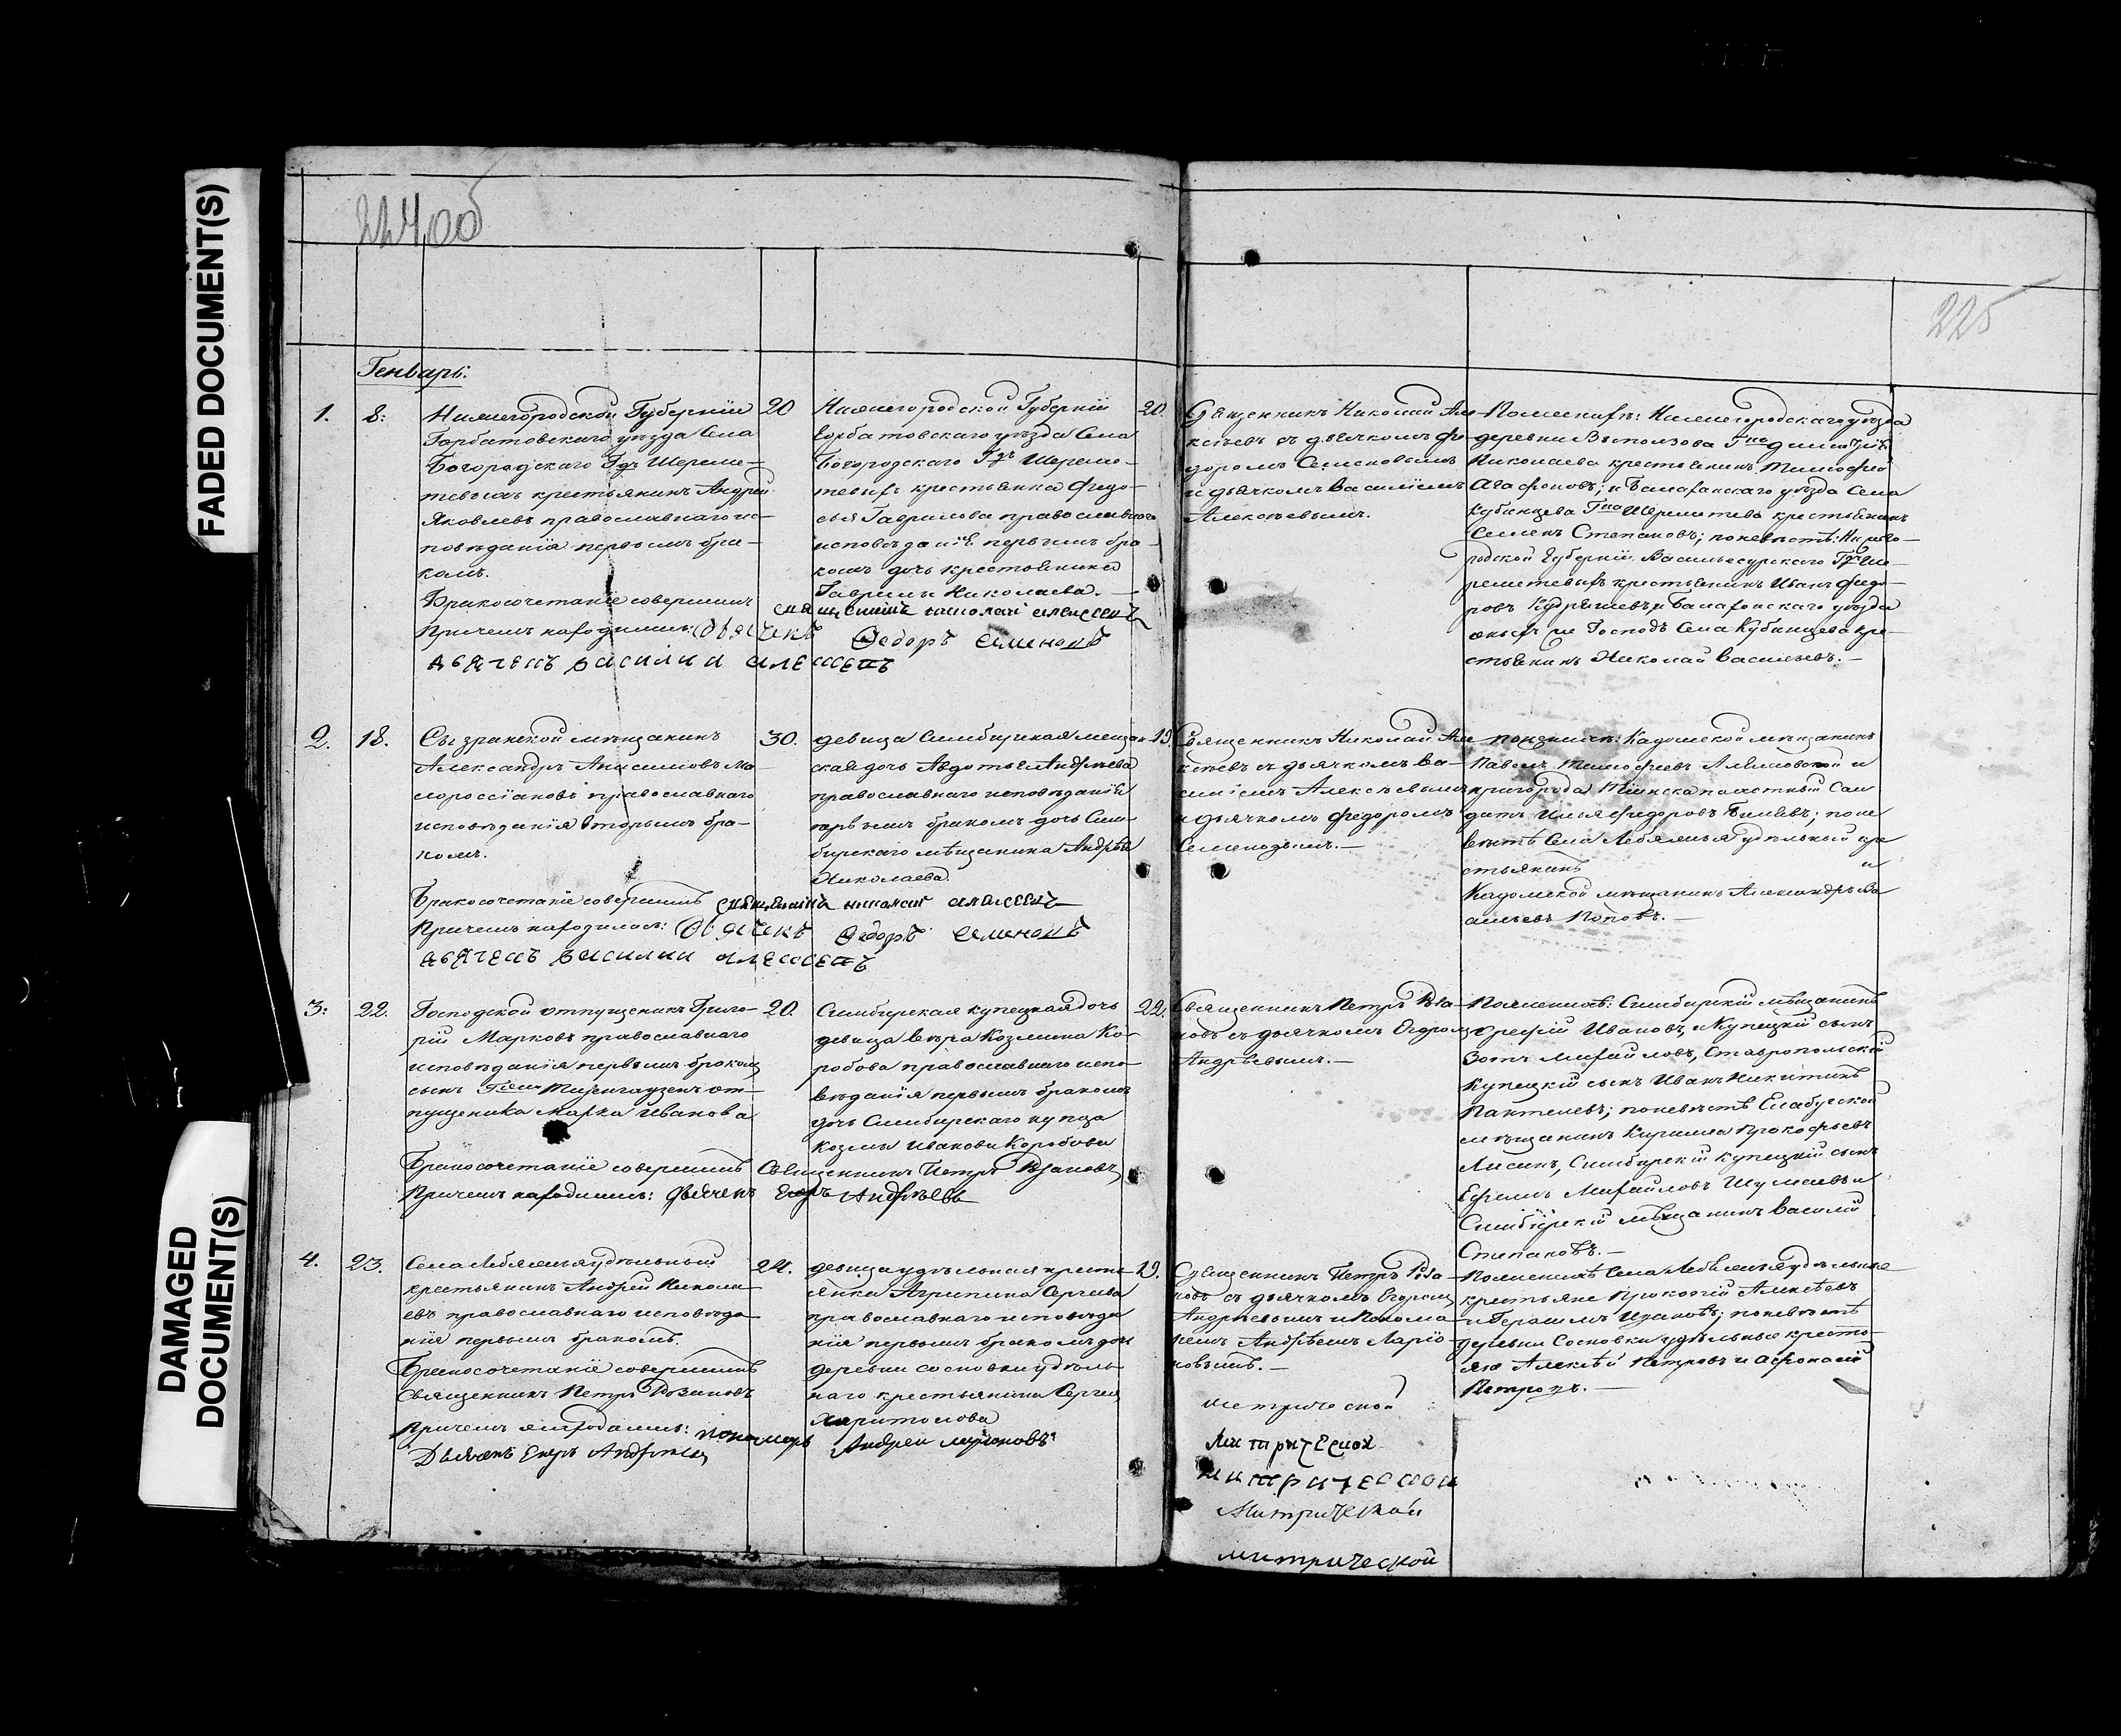 FADED DOCUMENT(S)
DAMAGED
DOCUMENT(S)
224об
225
Генварь.
1.
8:
Нижегородской Губернiи
Горбатовскаго уѣзда Села
Богородскаго Гдъ Шереме-
тевыхъ крестьянинъ Андрей
Яковлевъ православнаго ис-
повѣданiя первымъ бра-
комъ.
Бракосочетанiе совершилъ
Причемъ находились: Дьячекъ Ѳедоръ Семеновъ
дьячекъ василий алексевъ
20
Нижегородской Губернiи
Горбатовскаго уѣзда Села
Богородскаго Гдъ Шереме-
тевыхъ крестьянка Федо-
сья Гаврилова православнаго
исповѣданiя первымъ бра-
комъ дочь крестьянина
Гаврилы Николаева.
священникъ николай алексеевъ
20.
Священникъ Николай Але-
ксѣевъ съ дьячкомъ Фе-
доромъ Семеновымъ
и дьячкомъ Василiемъ
Алексѣевымъ.
По женихѣ: Нижегородскаго уѣзда
деревни
Николаева крестьянинъ Тимофей
Агафоновъ; и Балахонскаго уѣзда Села
Кубинцева Гна Шереметева крестьянинъ
Семенъ Степановъ; по невѣстѣ: Нижего-
родской Губернiи Васильсурскаго Гдъ Ше-
реметевыхъ крестьянинъ Иванъ Федо-
ровъ Кудряшевъ, и Балахонскаго уѣзда
оныхъ же Господъ Села Кубинцева кре-
стьянинъ Николай Васильевъ.
2.
18.
Сызранской мѣщанинъ
Александръ Анисимовъ Ма-
лороссiановъ православнаго
исповѣданiя вторымъ бра-
комъ.
Бракосочетанiе совершилъ священникъ николай алексеевъ
Причемъ находились: Дьячекъ Ѳедоръ Семеновъ
дьячекъ василии алексеевъ
30.
девица Симбирская мещан-
ская дочь Авдотья Андрѣева
православнаго исповѣданiя
первымъ бракомъ дочь Сим-
бирскаго мѣщанина Андрѣя
Николаева.
19.
Священникъ Николай Але-
ксѣевъ съ дьячкомъ Ва-
силiемъ Алексѣевымъ
и дьячкомъ Федоромъ
Семеновымъ.
по женихѣ: Кадомской мѣщанинъ
Павелъ Тимофеевъ и
пригорода Тiинска пахатный Сол
датъ Илья Федоровъ; по не
вѣстѣ Села Лебяжья удѣльный кре
стьянинъ и
Кадомской мѣщанинъ Александръ Ва
сильевъ Поповъ.
3.
22.
Господской отпущеникъ Григо-
рiй Марковъ православнаго
исповѣданiя первымъ бракомъ
сынъ Тизенгаузенъ от-
пущеника Марка Иванова
Бракосочетанiе совершилъ Священникъ Петръ Розановъ
Причемъ находились: Дьячекъ Егоръ Андрѣевъ
20.
Симбирская купецкая дочь
девица Вѣра Козмина Ко-
робова православнаго испо-
вѣданiя первымъ бракомъ
дочь Симбирскаго купца
Козмы Иванова Коробова
22.
Священникъ Петръ Роза-
новъ съ дьячкомъ Егоромъ
Андрѣевымъ.
По женихѣ: Симбирскiй мѣщанинъ
Иванов, Купецкiй сынъ
Зотъ Михайловъ, Ставропольскiй
Купецкiй сынъ Иванъ Никитинъ
Пантелеевъ; по невѣстѣ Елабугской
мѣщанинъ Кирилла Прокофьевъ
Лисинъ, Симбирскiй Купецкiй сынъ
Ефремъ Михайловъ и
Симбирскiй мѣщанинъ Василiй
Степановъ.
4.
23.
Села Лебяжья удѣльный
крестьянинъ Андрей Никола-
евъ православнаго исповѣда-
нiя первымъ бракомъ.
Бракосочетанiе совершилъ
Священникъ Петръ Розановъ
Причемъ находились: пономарь Андреи ларионовъ
Дьячекъ Егоръ Андрѣевъ
24.
девица удѣльная кресть-
янка Агрипина Сергѣева
православнаго исповѣда
нiя первымъ бракомъ дочь
деревни Сосновки удѣль-
наго крестьянина Сергея
Харитонова
19.
Священникъ Петръ Роза-
новъ съ дьячкомъ Егоромъ
Андрѣевымъ и Понома-
ремъ Андрѣемъ Ларiо-
новымъ.
По женихѣ Села Лебяжья удѣльные
крестьяне Прокопiй Алексѣевъ
и Герасимъ Ивановъ; по невѣстѣ
деревни Сосновки удѣльные кресть-
яне Алексѣй Петровъ и Афонасiй
Петровъ.
метрической
митрической
митрической
Митрической
митрической